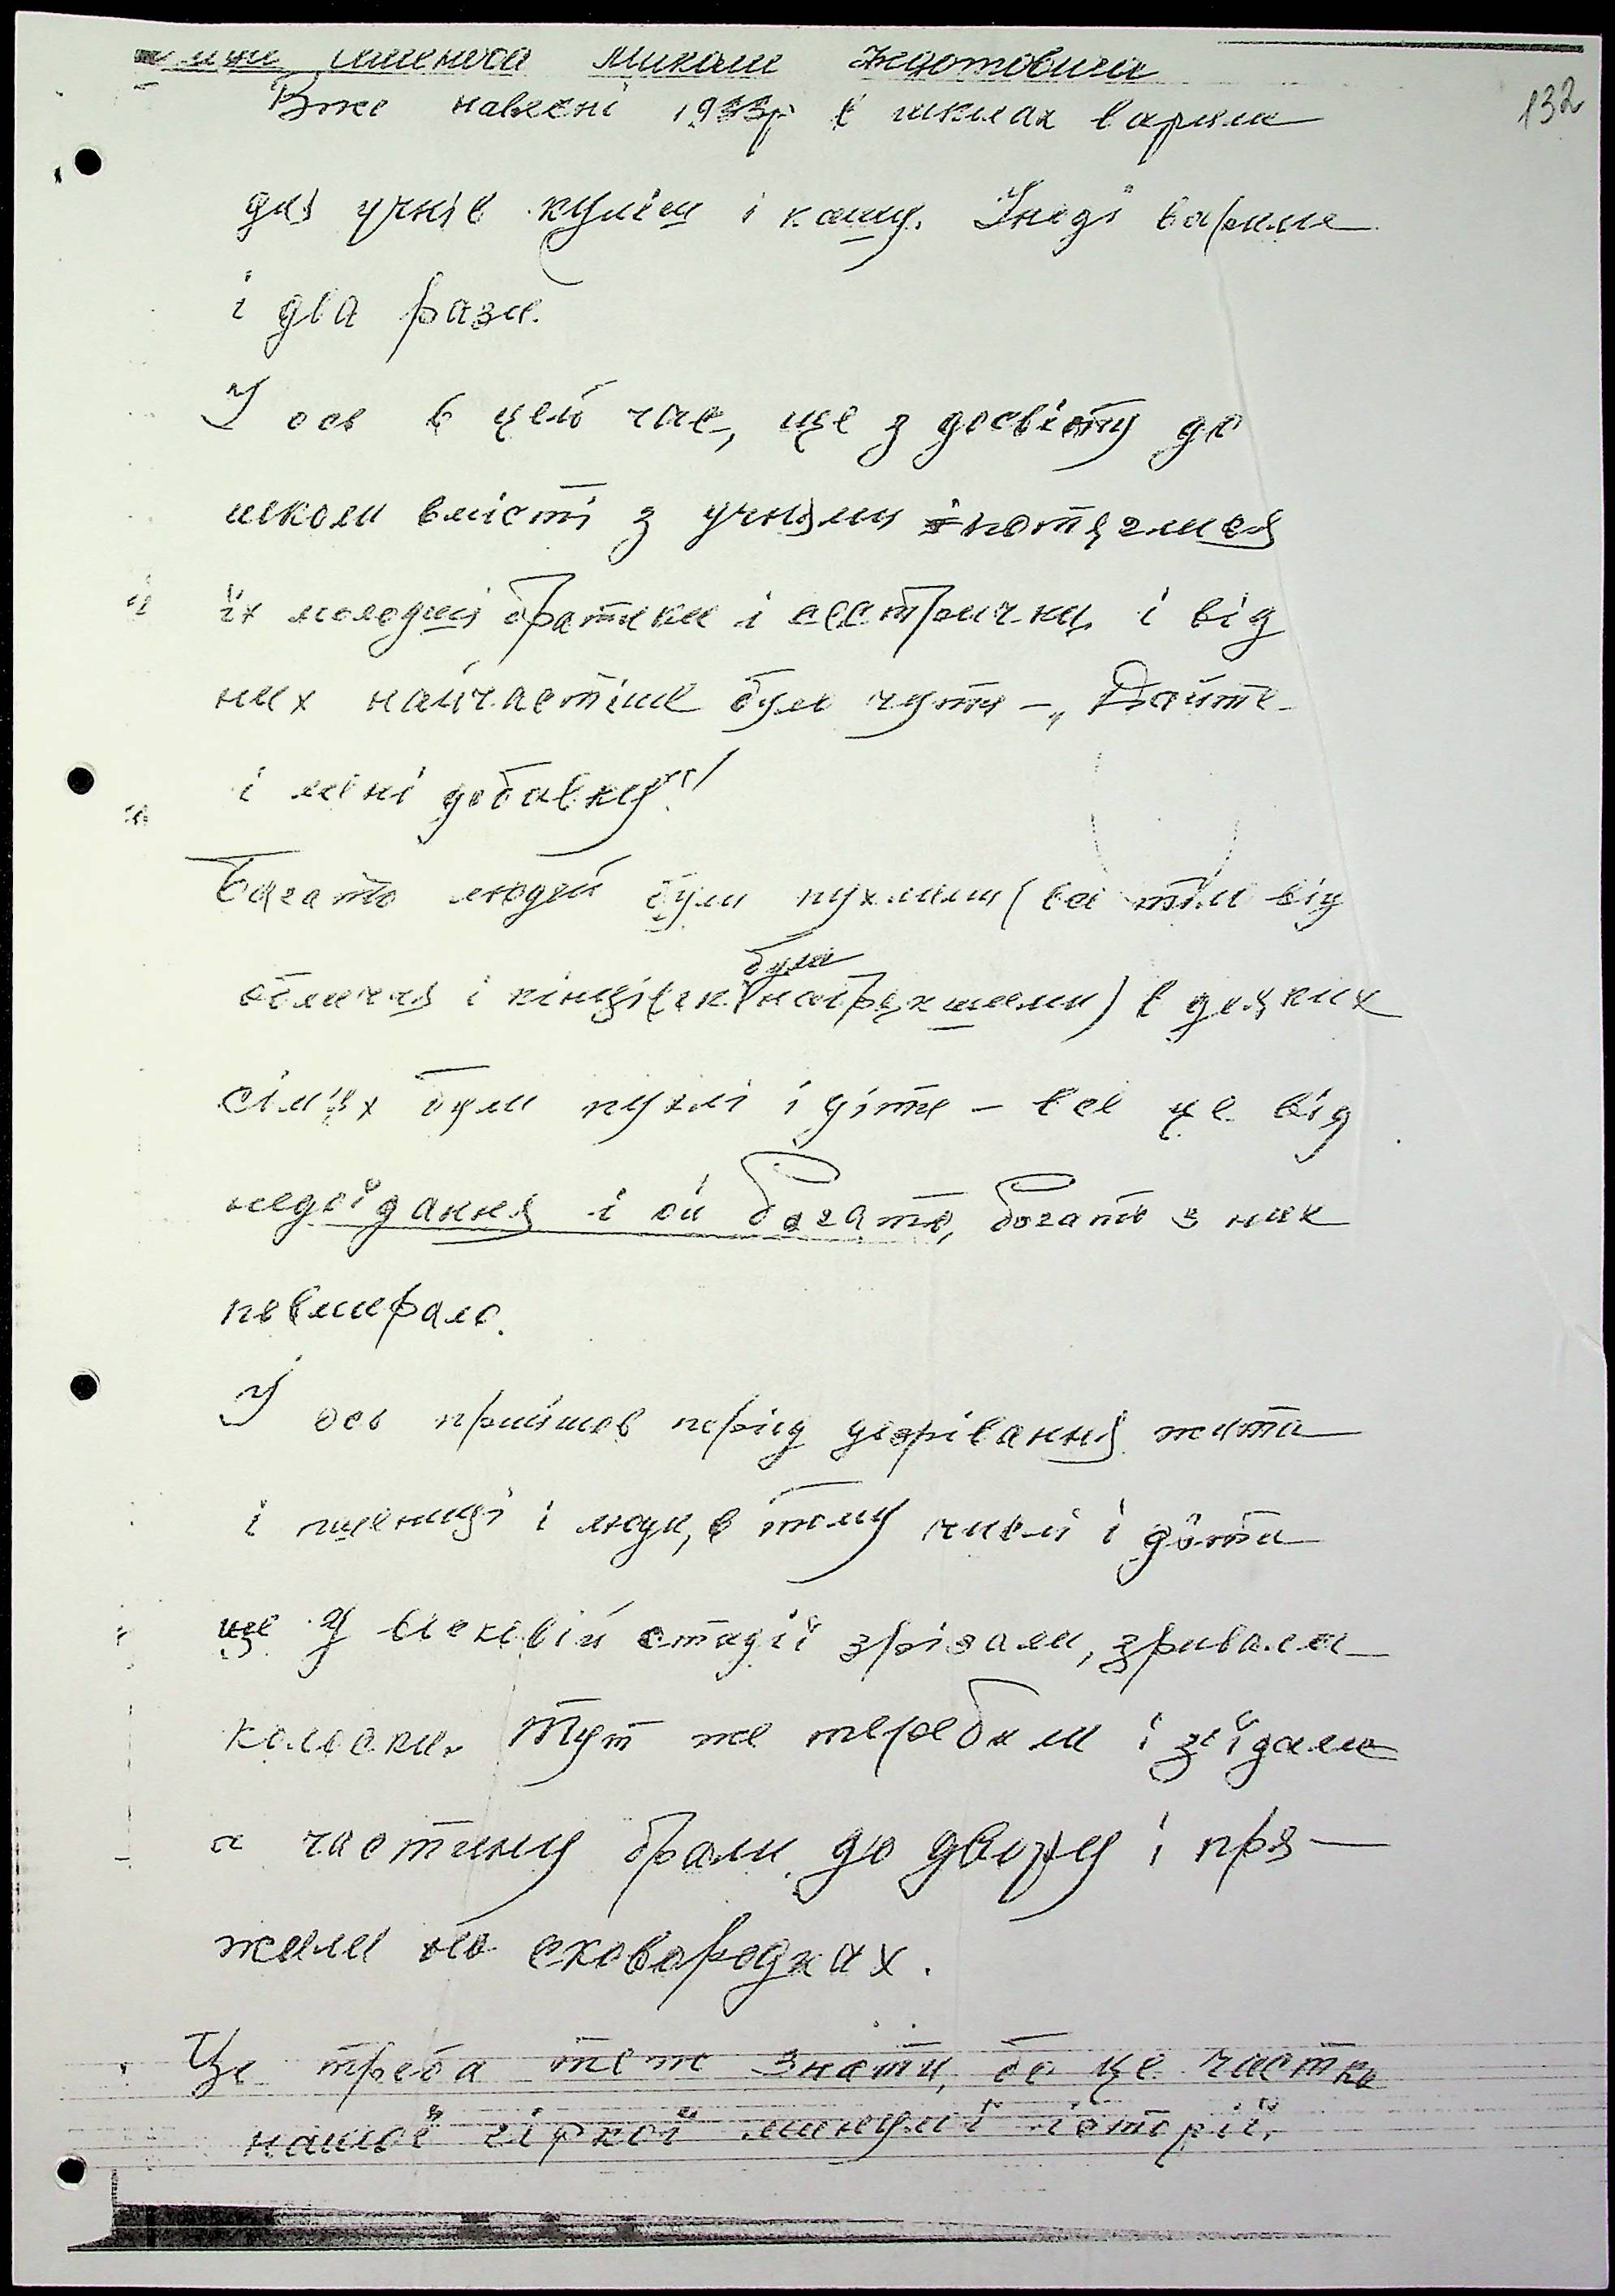 Микола Федотович
132
Вже навесні 1933р в школах варили
для учнів куліш і кашу. Інколи варили
і два рази.
І ось в цей час, ще з досвіту до
школи вмісті з учнями потяглися
їх молодші братики і сестрички, і від
них найчастіше було чути – „Дайте
і мені добавку"!
Багато людей були пухлими (всі тіли від
обличчя і кінцівок були набрякшими) в деяких
сім'ях були пухлі і діти – все це від
недоїдання і ой багато, багато з них
повмирало.
І ось прийшов період дозрівання жита
і пшениці і люди, в тому числі і діти
ще у восковій стадії зрізали, зривали
колоски. Тут же теребили і з'їдали
а частину брали до двору і пря–
жили на сковородках.
Це треба теж знати, бо це частка
нашої гіркої минулої історії.